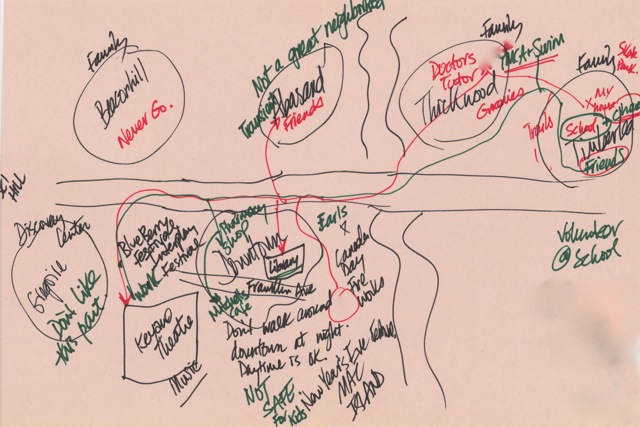 Family
Beaconhill
Never Go.
Not a great neighborhood
Transient
Abasand
+ Friends
Family
Doctors
Tutor
Thickwood
Groceries
YMCA + Swim
Family
Skate
Park.
My
House
School
Timberlea
Friends
Trails
!
Discovery
Center
Gregoire
Don't Like
this part.
Blueberry
Festival
Interplay
Festival
Work
Keyano
Theatre
Music
Pharmacy
Shop
Downtown
Library
Franklin Ave
Mitchells
Cafe
Earls
Canada
Day
Fire
works
Don't walk around
downtown at night.
Daytime is ok.
NOT
SAFE
For
Kids
New Year's Eve
MAC
ISLAND
Volunteer
@ School